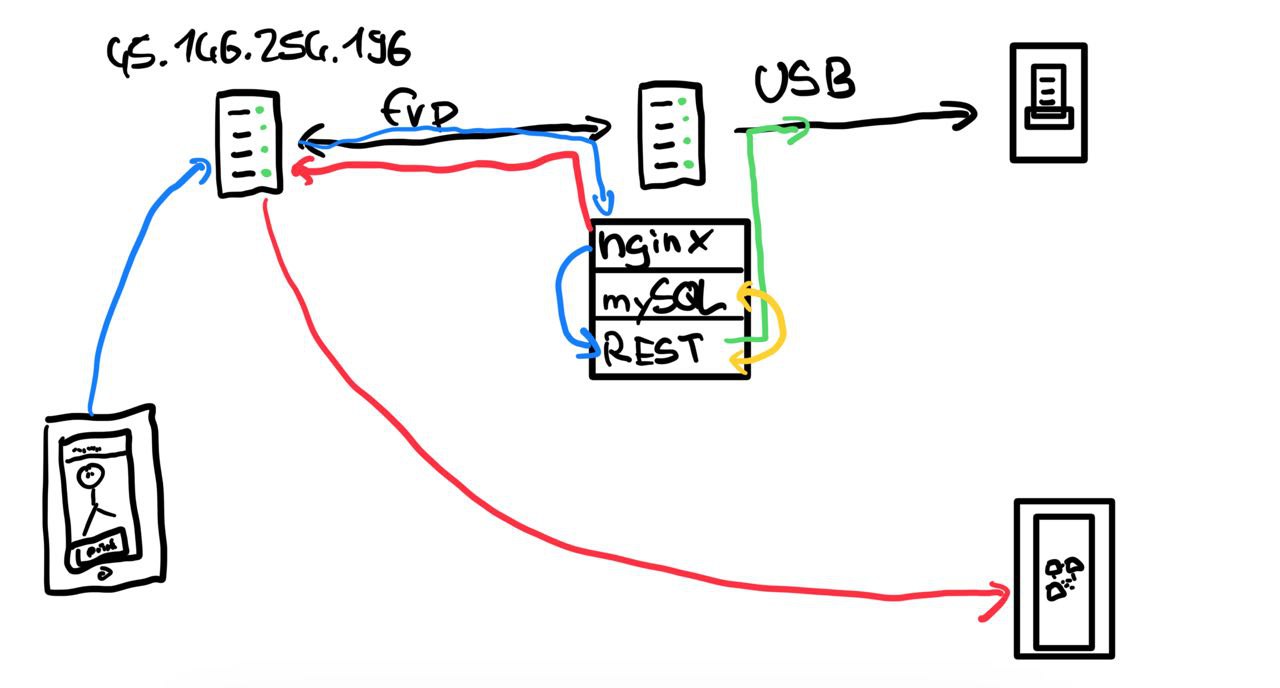 45.146.254.196
frp
USB
nginx
mySQL
REST